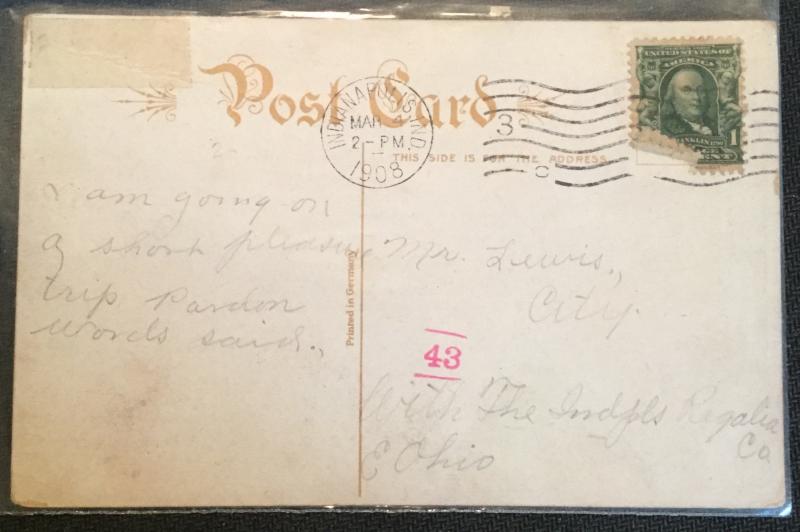 Post Card
INDIANAPOLIS, IND.
MAR 4
2 - PM
1908
3
C
UNITED STATES OF
AMERICA
FRANKLIN
1
CENT
THIS SIDE IS FOR THE ADDRESS
I am going on
a short pleasure
trip Pardon
words said.,
Printed in Germany
Mr. Lewis.,
City.
43
With The Indpls Regalia
Co
E Ohio